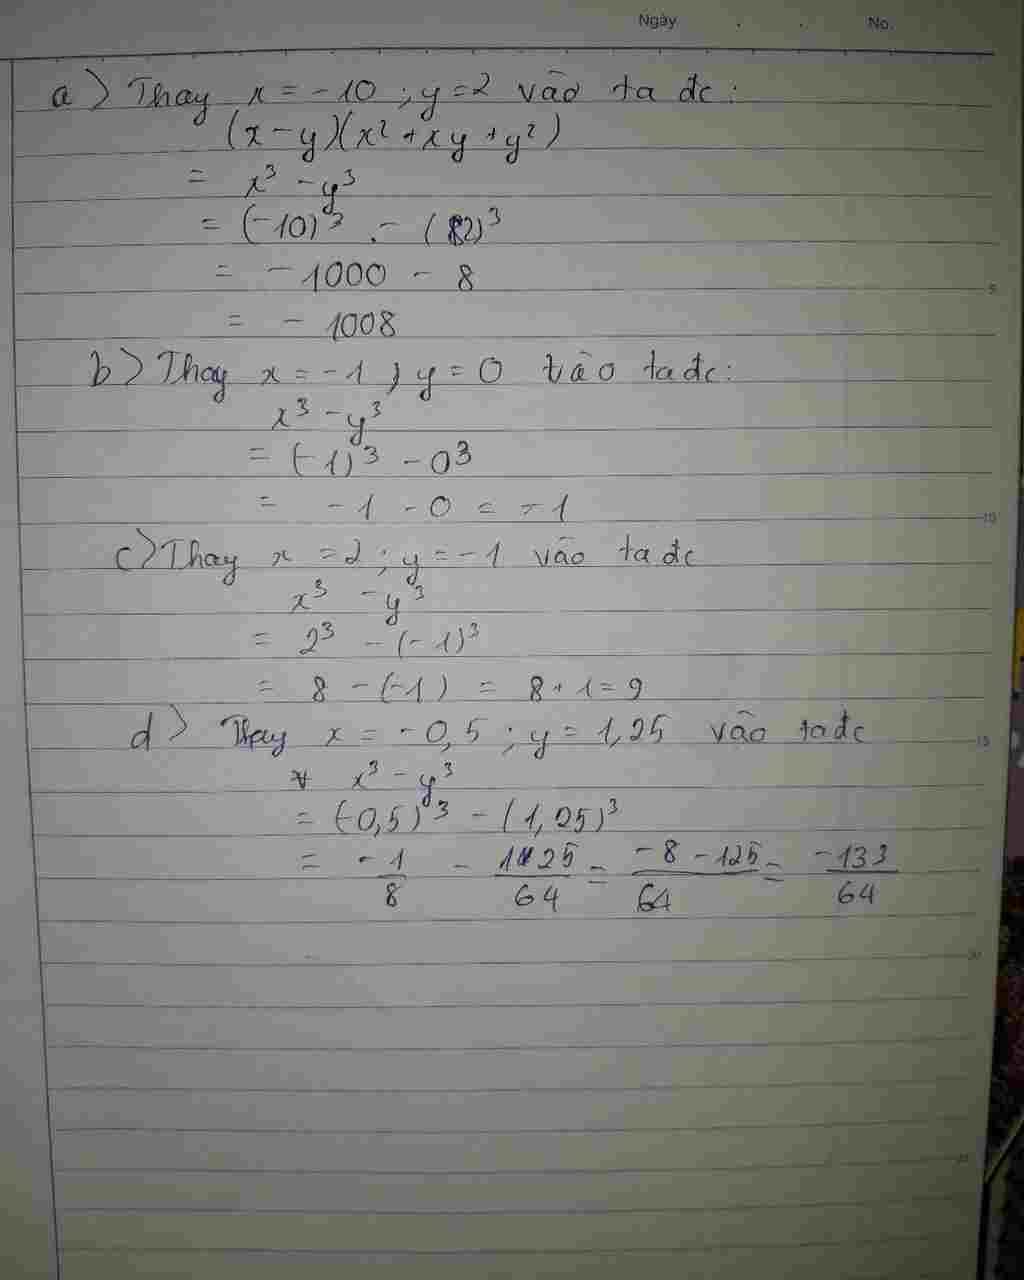 Ngày . . No.
a) Thay x = -10 ; y = 2 vào ta đc :
(x - y)(x² + xy + y²)
= x³ - y³
= (-10)³ - (2)³
= - 1000 - 8
= - 1008
b) Thay x = -1 ; y = 0 vào ta đc :
x³ - y³
= (-1)³ - 0³
= - 1 - 0 = -1
c) Thay x = 2 ; y = -1 vào ta đc
x³ - y³
= 2³ - (-1)³
= 8 - (-1) = 8 + 1 = 9
d) Thay x = -0,5 ; y = 1,25 vào ta đc
x³ - y³
= (-0,5)³ - (1,25)³
= -1/8 - 125/64 = -8 - 125/64 = -133/64
5
10
15
20